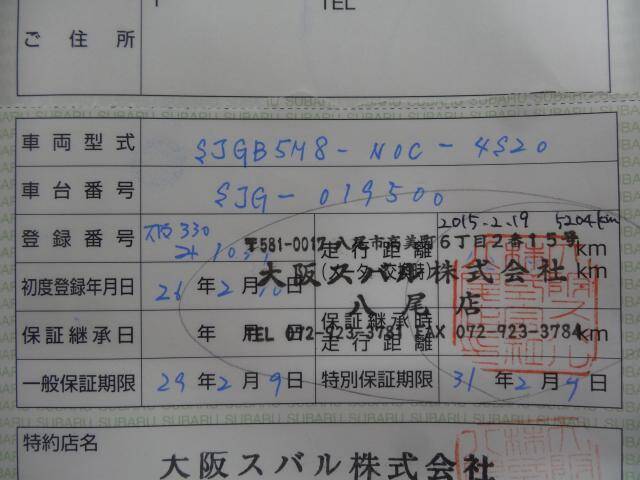 TEL
ご住所
SUBARU SUBARU SUBARU SUBARU SUBARU SUBARU
車両型式 SJGB5M8-NOC-4S20
車台番号 SJG-019500
2015.2.19 5204km
登録番号 大阪330
〒581-0017 八尾市高美町6丁目2番15号 km
大阪スバル株式会社 km
初度登録年月日 26年2月10日
八尾店
保証継承日 年 月 日 保証継承時
走行距離 km
TEL 072-923-3781 FAX 072-923-3784
一般保証期限 29年2月9日 特別保証期限 31年2月9日
SUBARU SUBARU SUBARU SUBARU SUBARU SUBARU
特約店名
大阪スバル株式会社